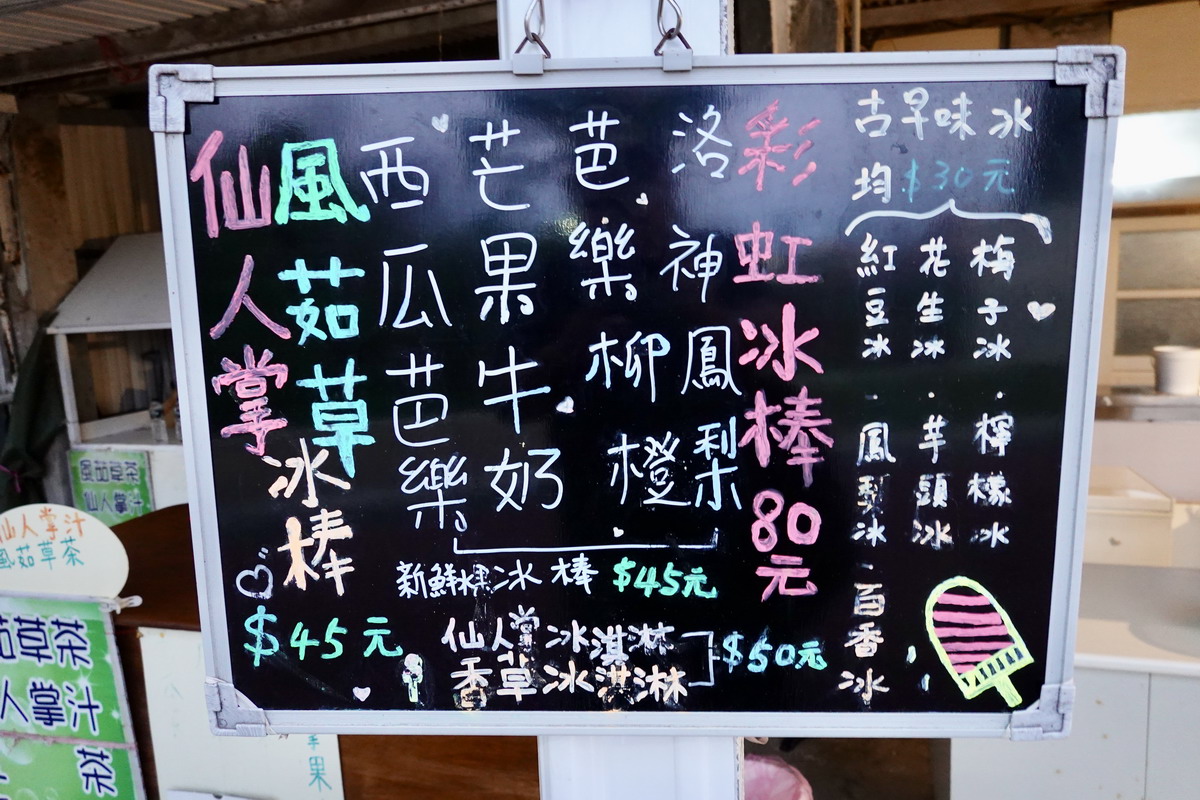 古早味冰
均$30元
梅子冰·檸檬冰
花生冰·芋頭冰
紅豆冰·鳳梨冰·百香冰
彩虹冰棒80元
洛神鳳梨
芭樂柳橙
芒果牛奶
西瓜芭樂
新鮮水果冰棒 $45元
風茹草
仙人掌
冰棒
$45元
仙人掌冰淇淋
香草冰淇淋
$50元
風茹草茶
仙人掌汁
仙人掌汁
風茹草茶
茹草茶
人掌汁
茶